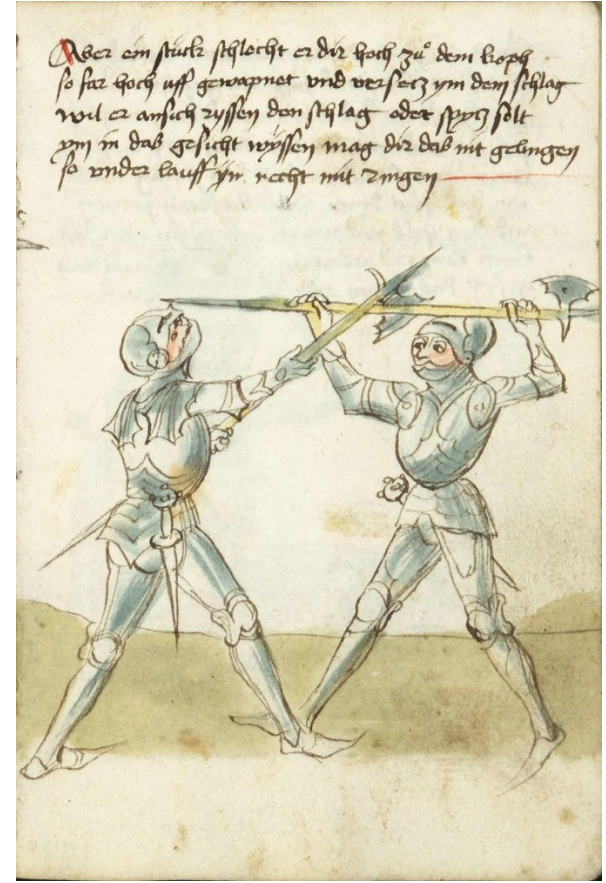 Aber ein stuck schlecht er dir hoch zuͦ dem kopff
so far hoch uff gewapnet vnd versecz ym dem schlag
wil er ansich ryssen den schlag oder spycz solt
ym in das gesicht wyssen mag dir das nit gelingen
so vnder lauff yn recht mit ringen